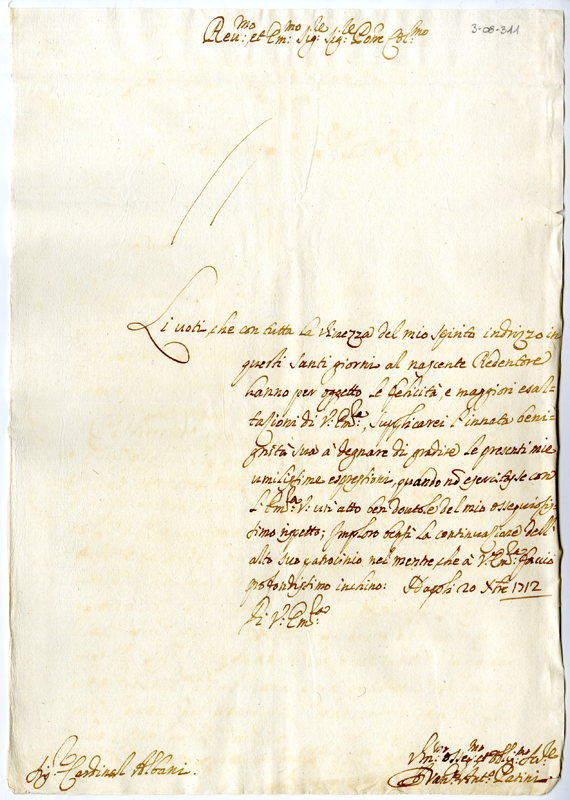 3-08-311
Reu:mo et Em:mo Sig:re Sig:re P̃one Col:mo
Li uoti, che con tutta la viuezza del mio spirito indrizzo in
questi santi giorni al nascente Redentore
hanno per oggetto le felicità e maggiori esal-
tationi di V: Em:za, supplicarei l'innata beni-
gnità sua à degnare di gradire le presenti mie
umilissime espressioni, quando nõ esercitasse con
l'Em:za V: un atto ben douutole del mio ossequiosis-
simo rispetto; Imploro bensì la continuatione dell'
alto suo patrocinio nel mentre che à V: Em:za faccio
profondissimo inchino: Napoli 20 Xbre 1712
Di V: Em:za
Sig:r Cardinal Albani.
Vm:mo Osseq:mo et Obblig:mo